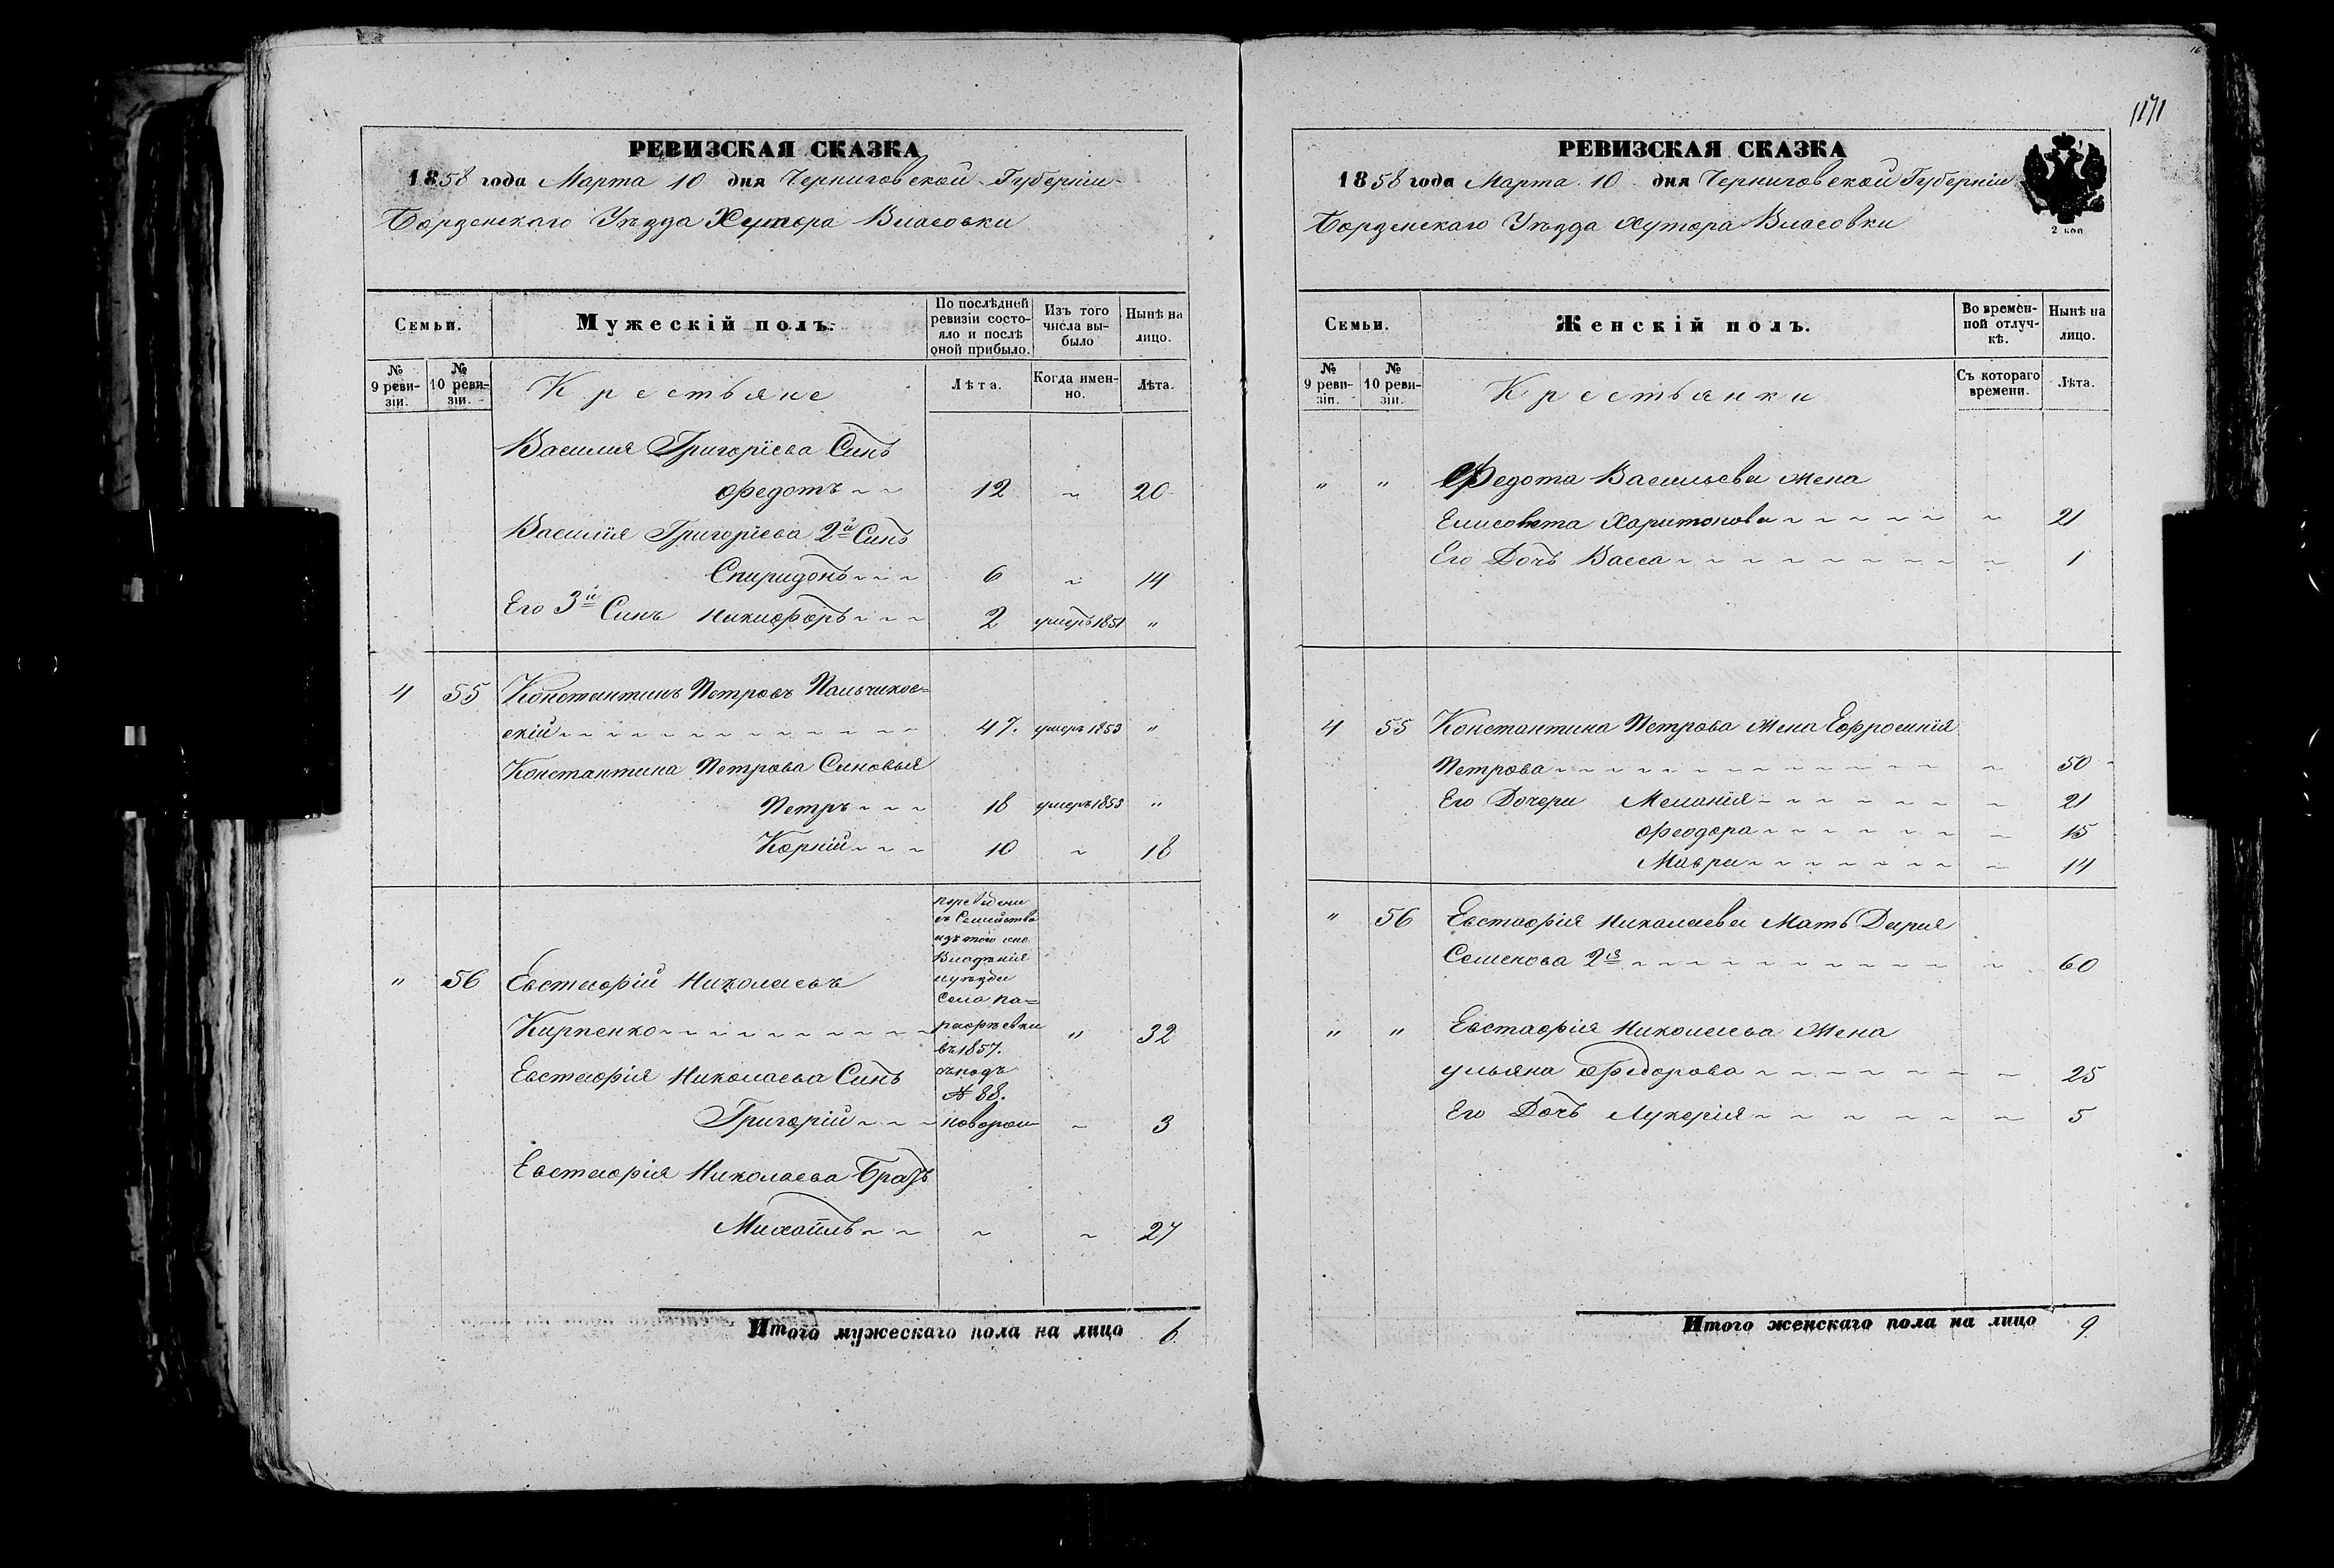 1171
РЕВИЗСКАЯ СКАЗКА
1858 года Марта 10 дня Черниговской Губернии
Борзенскаго Уѣзда Хутора Власовки
Семьи.
Мужескій полъ.
По послѣдней ревизіи состояло и послѣ оной прибыло.
Изъ того числа выбыло
Нынѣ на лицо.
№ 9 ревизіи.
№ 10 ревизіи.
Крестьяне
Лѣта.
Когда именно.
Лѣта.
Василия Григоріева Синъ
Федотъ 12 20
Василія Григоріева 2й Синъ
Спиридонъ 6 14
Его 3й Синъ Никифоръ 2 умеръ 1851 "
4 55 Константинъ Петровъ Пальчиков=
скій 47. умеръ 1853 "
Константина Петрова Сыновья
Петръ 18 умеръ 1853 "
Корній 10 18
переведени
въ Семейства
изъ того же
Владѣнія
и уѣзда
Села Па=
рафѣевки
въ 1857.
подъ
№ 88.
" 56 Евстафій Николаевъ
Кирпенко " 32
Евстафія Николаева Синъ
Григорій новорож 3
Евстафія Николаева Братъ
Михаилъ 27
Итого мужескаго пола на лицо 6
РЕВИЗСКАЯ СКАЗКА
1858 года Марта 10 дня Черниговской Губерніи
Борзенскаго Уѣзда Хутора Власовки
2 коп
Семьи.
Женскій полъ.
Во временной отлучкѣ.
Нынѣ на лицо.
№ 9 ревизіи.
№ 10 ревизіи.
Крестьянки
Съ котораго времени.
Лѣта.
" " Федота Васильева жена
Елисовета Харитонова 21
Его Дочь Васса 1
4 55 Константина Петрова Жена Ефросинія
Петрова 50
Его Дочери Меланія 21
Феодора 15
Мавра 14
" 56 Евстафія Николаева Мать Дария
Семенова 2я 60
" " Евстафія Николаева Жена
ульяна Федорова 25
Его Дочь Лукерія 5
Итого женскаго пола на лицо 9.